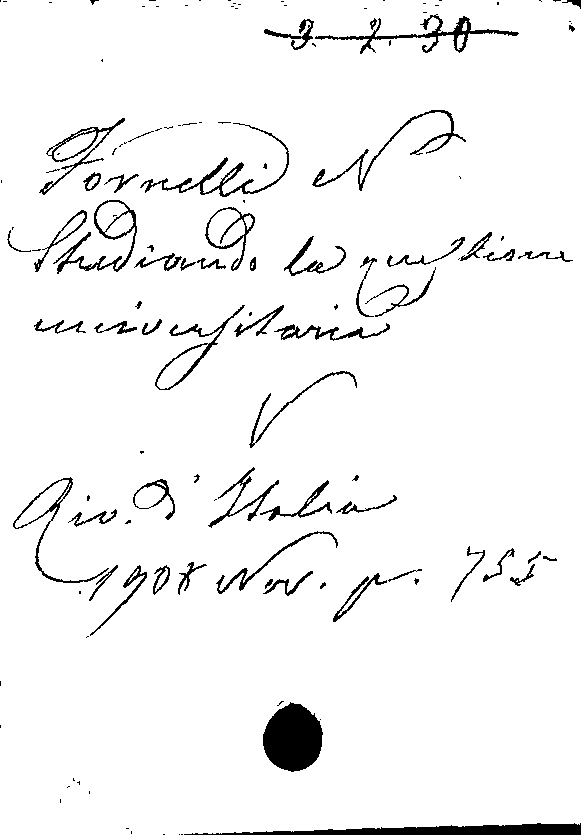 3. 2. 30
Fornelli N
Studiando la questione
universitaria
V
Riv. d' Italia
1908 Nov. p. 755